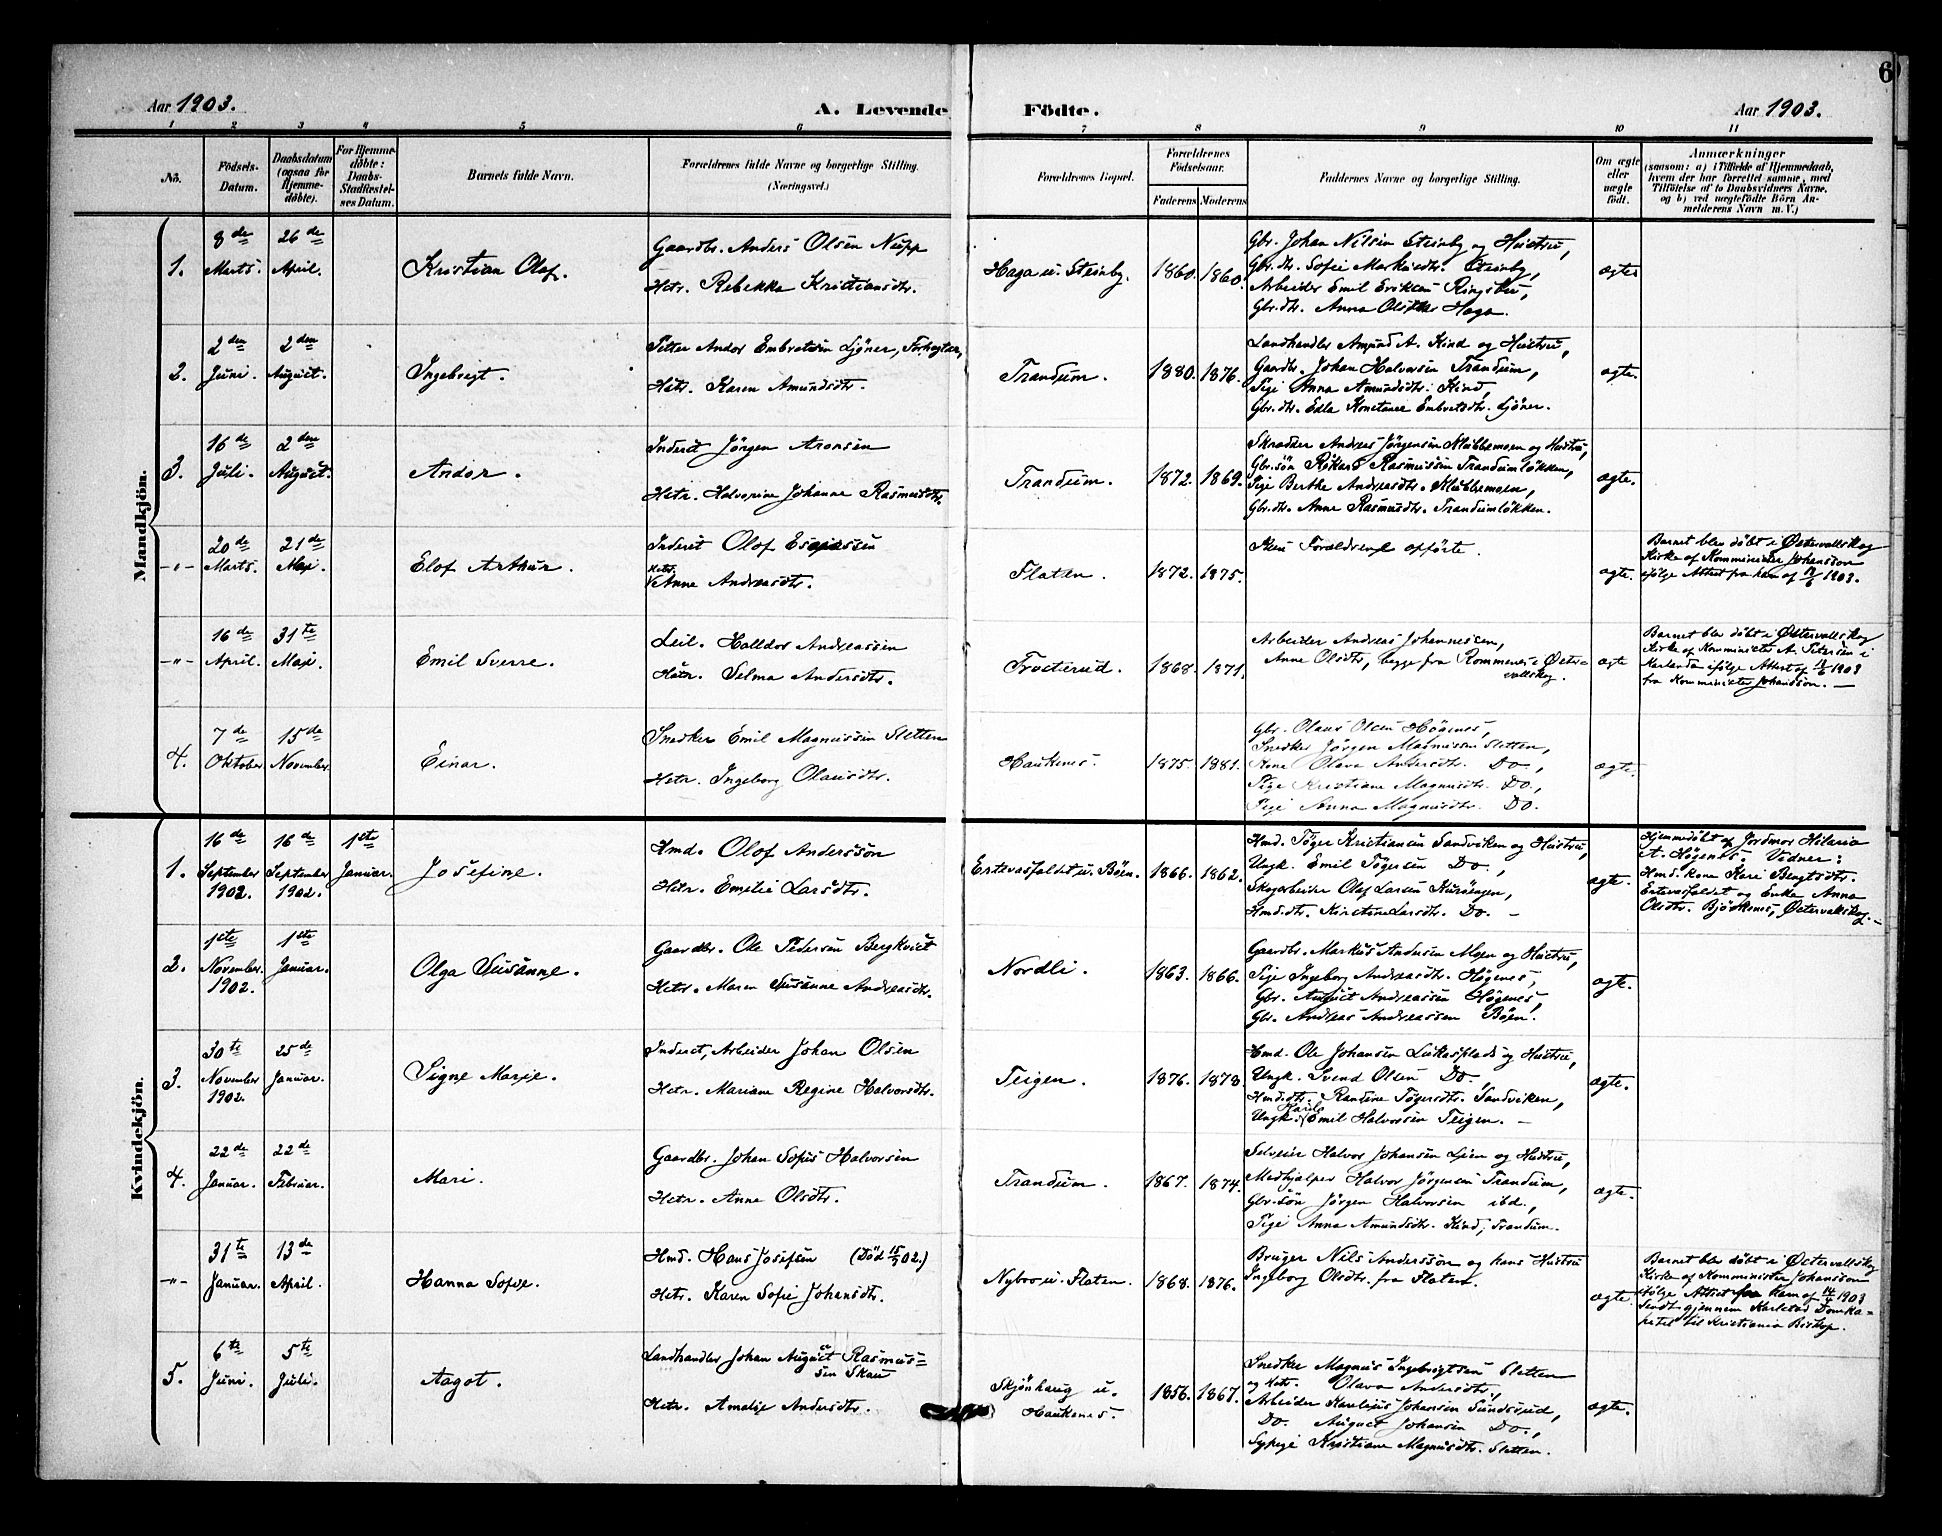 6
Aar 1903.
A. Levende Födte.
Aar 1903.
1 2 3 4 5 6 7 8 9 10 11
No.
Födsels-
Datum.
Daabsdatum
(ogsaa for
Hjemme-
döbte).
For Hjemme-
döbte:
Daabs-
Stadfæstel-
ses Datum.
Barnets fulde Navn.
Forældrenes fulde Navne og borgerlige Stilling.
(Næringsvei.)
Forældrenes Bopæl.
Forældrenes
Födselsaar.
Faderens Moderens
Faddernes Navne og borgerlige Stilling.
Om ægte
eller
uægte
födt.
Anmærkninger
(saasom: a) i Tilfælde af Hjemmedaab,
hvem der har forrettet samme, med
Tilföielse af to Daabsvidners Navne,
og b) ved uægtefödte Börn An-
melderens Navn m. V.)
Mandkjön.
1.
8de
Marts.
26de
April.
Kristian Olaf.
Gaardbr. Anders Olsen Nupp
Hstr. Rebekka Kristiansdtr.
Haga u. Steinby.
1860. 1860.
Gbr. Johan Nilsen Steinby og Hustru,
Gbr. dtr. Sofie Markusdtr. Steinby,
Arbeider Emil Eriksen
Gbr. dtr. Anna Haga.
ægte
2.
2den
Juni.
2den
August.
Ingebrigt.
Petter Andor Embretsen Ljöner,
Hstr. Karen Amundsdtr.
Trandum.
1880. 1876.
Landhandler Amund A. Kind og Hustru,
Gaardbr. Johan Halvorsen Trandum,
Pige Anna Amundsdtr. Kind,
Gbr. dtr. Edla Konstance Embretsdtr. Ljöner.
ægte.
3.
16de
Juli.
2den
August.
Andor.
Inderst Jörgen Aronsen
Hstr. Halvorine Johanne Rasmusdtr.
Trandum.
1872. 1869.
Skrædder Andreas Jörgensen Klubbemoen og Hustru,
Gbr. sön Rikard Rasmussen Trandumlökken,
Pige Berthe Andreasdtr. Klubbemoen,
Gbr. dtr. Anne Rasmusdtr. Trandumlökken.
ægte.
-"-
20de
Marts.
21de
Maj.
Elof Arthur.
Inderst Olof
Hstr. Anne Andreasdtr.
Flaten.
1872. 1875.
Kun Forældrene opförte.
ægte.
Barnet blev döbt i Östervallskog
Kirke af Komminister Johansson
ifölge Attest fra ham af 1903.
-"-
16de
April.
31te
Maj.
Emil Sverre.
Leil. Halldor Andreassen
Hstr. Selma Andersdtr.
1868. 1871.
Arbeider Andreas Johannessen,
Anne Olsdtr, begge fra Rommenes i Öster-
vallskog.
ægte
Barnet blev döbt i Östervallskog
Kirke af Komminister A. Petersen i
Karlanda ifölge Attest af 1903
fra Komminister Johansson. —
4.
7de
Oktober.
15de
November.
Einar.
Snedker Emil Magnussen Sletten
Hstr. Ingeborg Olausdtr.
Haukenes.
1875. 1881.
Gbr. Olaus Olsen Högenes,
Snedker Jörgen Magnussen Sletten,
Kone Olava Andersdtr. Do,
Pige Kristiane Magnusdtr. Do,
Pige Anna Magnusdtr. Do.
ægte.
Kvindekjön.
1.
16de
September
1902.
16de
September
1902.
1ste
Januar.
Josefine.
Hmd. Olof Andersson
Hstr. Emelie Larsdtr.
Ertevasfaldet u. Böen.
1866. 1862.
Hmd. Töger Kristiansen Sandviken og Hustru,
Ungk. Emil Tögersen Do,
Skogarbeider Olaf Larsen
Hmd. dtr. Larsdtr. Do. —
ægte.
Hjemmedöbt af Jordmor Hilaria
A. Högenes. Vidner:
Hmd. kone Kari Bengtsdtr.
Ertevasfaldet og Enke Anna
Olsdtr. Östervallskog. —
2.
1ste
November.
1902.
1ste
Januar.
Olga Susanne.
Gaardbr. Ole Pedersen Bergkvist
Hstr. Maren Susanne Andreasdtr.
Nordli.
1863. 1866.
Gaardbr. Markus Andersen Moen og Hustru,
Pige Ingeborg Andreasdtr. Högenes,
Gbr. August Andreassen Högenes,
Gbr. Andreas Andreassen Böen.
ægte.
3.
30te
November
1902.
25de
Januar.
Signe Marie.
Inderst, Arbeider Johan Olsen
Hstr. Mariane Regine Halvorsdtr.
Teigen.
1876. 1873.
Hmd. Ole Johansen og Hustru,
Ungk. Svend Olsen Do,
Hmd. dtr. Randine Tögersdtr. Sandviken,
Ungk. Emil Halvorsen Teigen. —
ægte.
4.
22de
Januar.
22de
Februar.
Mari.
Gaardbr. Johan Sofus Halvorsen
Hstr. Anne Olsdtr.
Trandum.
1867. 1874.
Selveier Halvor Johansen Lien og Hustru,
Medhjælper Halvor Jörgensen Trandum,
Gbr. sön Jörgen Halvorsen ibd.,
Pige Anna Amundsdtr. Kind, Trandum.
ægte.
-"-
31te
Januar.
13de
April.
Hanna Sofie.
Hmd. Hans Josefsen (Död 15/7 02.)
Hstr. Karen Sofie Johansdtr.
Nybro u. Flaten.
1868. 1876.
Bruger Nils Andersson og hans Hustru
Ingeborg Olsdtr. fra Flaten.
ægte.
Barnet blev döbt i Östervallskog
Kirke af Komminister Johansson
ifölge Attest fra ham af 14/4 1903
sendt gjennem Karlstad Domka-
pitel til Kristiania Biskop.
5.
6te
Juni.
5te
Juli.
Aagot.
Landhandler Johan August Rasmus-
sen Skau
Hstr. Amalie Andersdtr.
Skjönhaug u.
Haukenes.
1856. 1867.
Snedker Magnus Ingebrigtsen Sletten
og Hstr. Olava Andersdtr.,
Arbeider Karelius Johansen Sundsrud,
Do. August Johansen Do.,
Sypige Kristiane Magnusdtr. Sletten.
ægte.